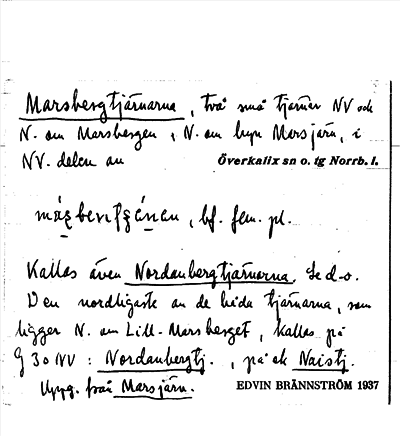 Marsbergtjärnarna, två små tjärnar NV och
N. om Marsbergen, N. om byn Marsjärv, i
NV. delen av Överkalix sn o. tg Norrb. l.
bf. fem. pl.
Kallas även Nordanbergtjärnarna. Se d-o.
Den nordligaste av de båda tjärnarna, som
ligger N. om Lill-Marsberget, kallas på
G 30 NV: Nordanbergtj., på ek Naistj.
Uppg. från Marsjärv. EDVIN BRÄNNSTRÖM 1937